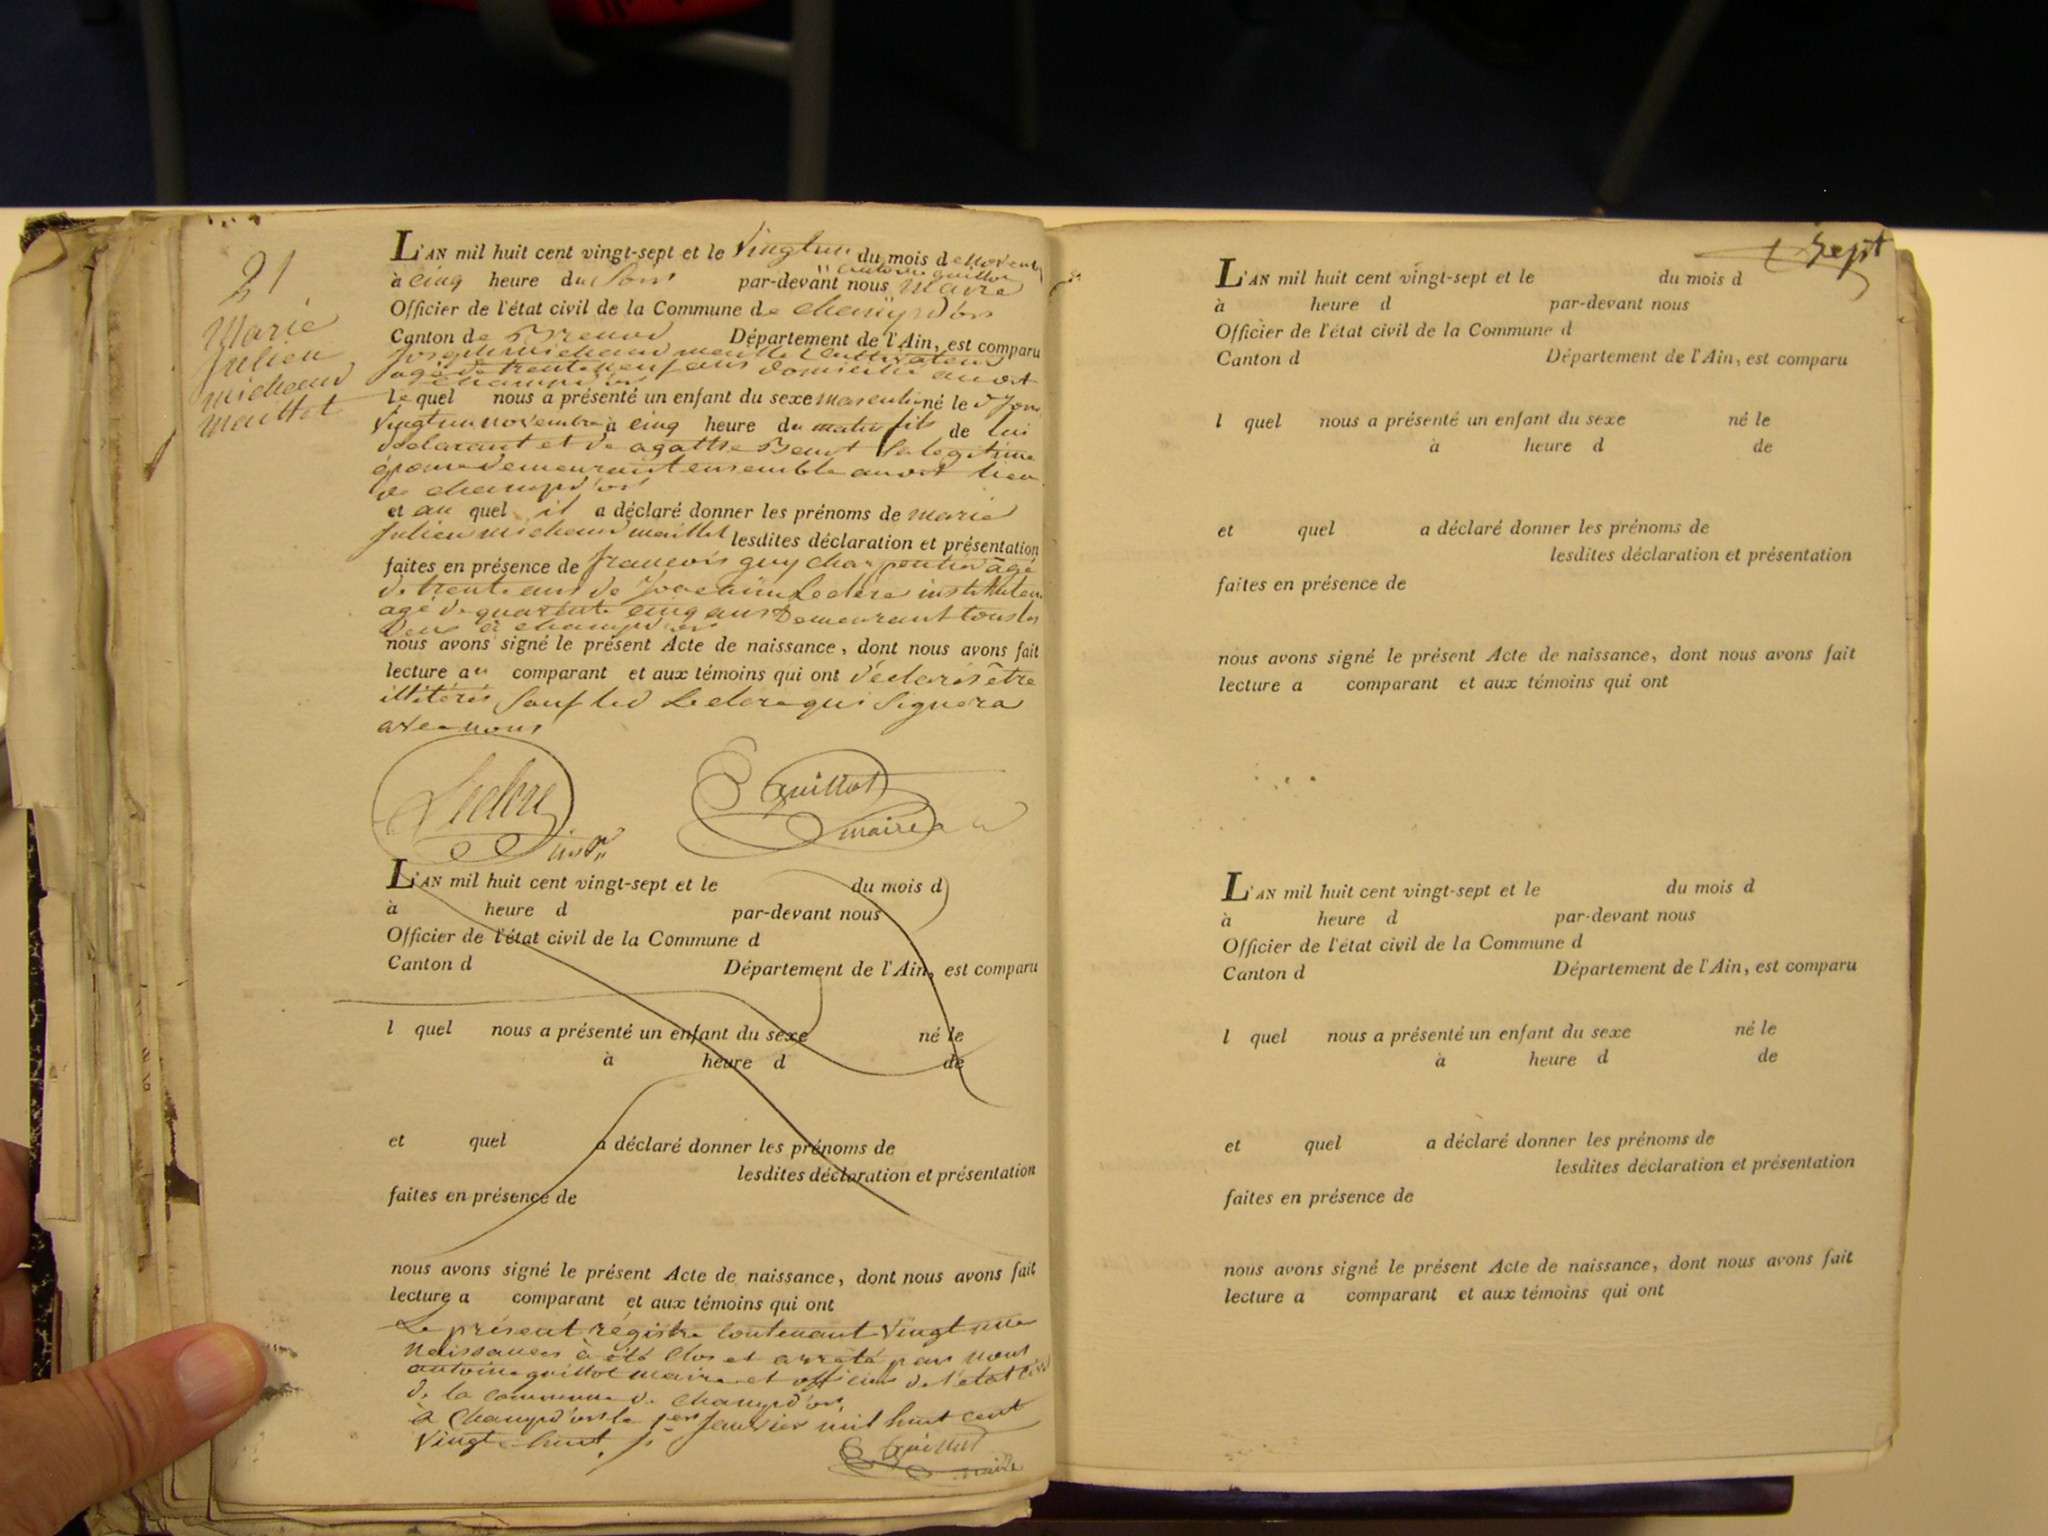 21
Marie
Julien
michaud
maillot
L'AN mil huit cent vingt-sept et le Vingtun du mois de Novembre
à cinq heure du Soir par-devant nous antoine guillot maire
Officier de l'état civil de la Commune de champd'or
Canton de Brenod Département de l'Ain, est comparu
Joseph michaud maillot Cultivateur
agé de trente neuf ans domicilié audit
champd'or
le quel nous a présenté un enfant du sexe masculin né le d. jour
Vingtun novembre à cinq heure du matin fils de lui
declarant et de agathe Benoit Sa legitime
épouse demeurant ensemble audit lieu
de champd'or
et au quel il a déclaré donner les prénoms de marie
Julien michaud maillot lesdites déclaration et présentation
faites en présence de francois guy charpentier âgé
de trente ans de Joachim Leclere instituteur
agé de quarante cinq ans Demeurant tous les
deux à champd'or
nous avons signé le présent Acte de naissance, dont nous avons fait
lecture au comparant et aux témoins qui ont déclarés être
illitérés Sauf led Leclere qui Signera
avec nous
Leclere
Guillot
maire
L'AN mil huit cent vingt-sept et le du mois d
à heure d par-devant nous
Officier de l'état civil de la Commune d
Canton d Département de l'Ain, est comparu
l quel nous a présenté un enfant du sexe né le
à heure d de
et quel a déclaré donner les prénoms de
lesdites déclaration et présentation
faites en présence de
nous avons signé le présent Acte de naissance, dont nous avons fait
lecture a comparant et aux témoins qui ont
Le présent régistre Contenant Vingt une
Naissances à été Clos et arrêté par nous
antoine guillot maire et officier de l'état civil
de la commune de Champd'or
à Champd'or le 1er Janvier mil huit cent
Vingt huit
Guillot
maire
Sept
L'AN mil huit cent vingt-sept et le du mois d
à heure d par-devant nous
Officier de l'état civil de la Commune d
Canton d Département de l'Ain, est comparu
l quel nous a présenté un enfant du sexe né le
à heure d de
et quel a déclaré donner les prénoms de
lesdites déclaration et présentation
faites en présence de
nous avons signé le présent Acte de naissance, dont nous avons fait
lecture a comparant et aux témoins qui ont
L'AN mil huit cent vingt-sept et le du mois d
à heure d par-devant nous
Officier de l'état civil de la Commune d
Canton d Département de l'Ain, est comparu
l quel nous a présenté un enfant du sexe né le
à heure d de
et quel a déclaré donner les prénoms de
lesdites déclaration et présentation
faites en présence de
nous avons signé le présent Acte de naissance, dont nous avons fait
lecture a comparant et aux témoins qui ont